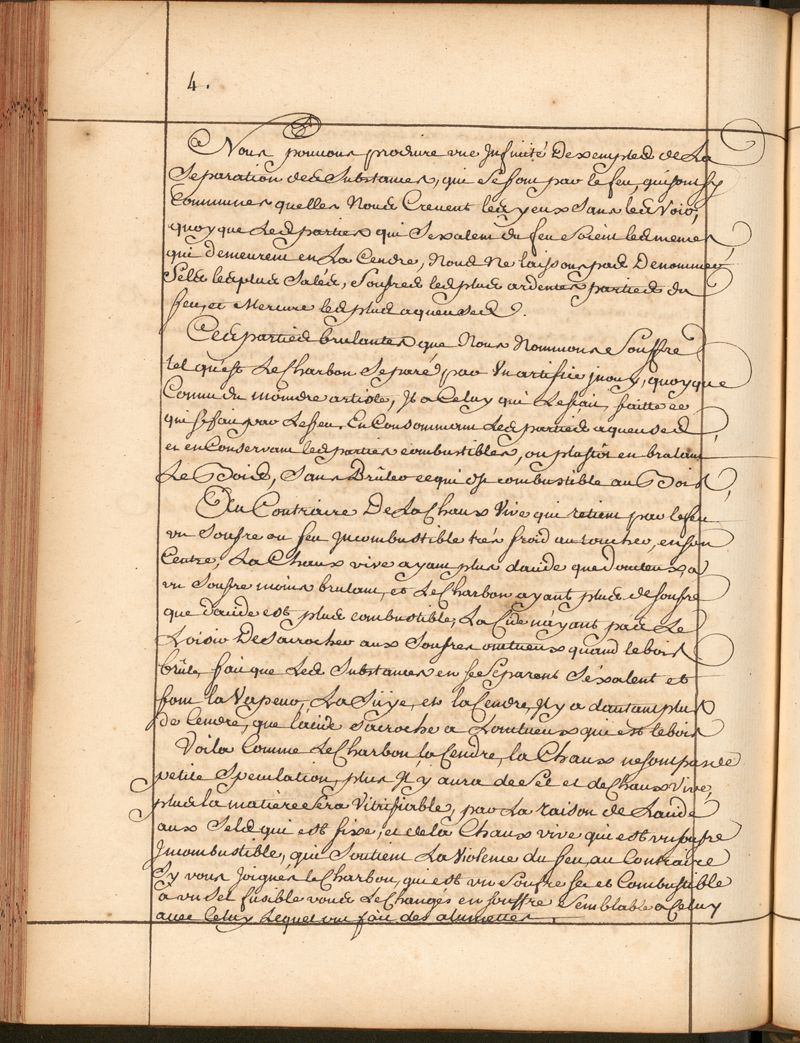 4.
Nous pouvons produire une Infinité Dexemples de La
Separation des Substances, qui se font par le feu, qui sont sy
Communes quelles Nous Crevent les yeux Sans les Voir,
quoyque Les parties qui Sexalent du feu Soient les memes
qui demeurent en La Cendre, Nous Ne laissons pas Denommer
Sels les plus Salés, Soufres les plus ardentes parties du
feu, et Mercure les plus aqueuses.
Ces parties brulantes que Nous Nommons Souffre
tel quest Le Charbon Separé par Un artifice jnouy, quoyque
Connu du moindre artiste, Il a Celuy qui Lesçait, faitte ce
qui se fait par Le feu, En Consommant Les parties aqueuses
et en Conservant les parties combustibles, ou plustôt en bralant
Le Bois, Sans Brûler ce qui est combustible au Bois,
Au Contraire De La Chaux Vive qui retient par le feu
un Soufre ou feu Incombustible trés froid au toucher, en son
Centre, La Chaux vive ayant plus dacide que donteux, a
un Soufre moins brulant, et Le Charbon ayant plus de soufre
que dacide est plus combustible, La Cide nayant pas Le
Loisir De Sacrocher aux Soufres onctueux quand le bois
brûle, fait que Les Substances en se Separent Séxalent et
font la Vapeur, La Suÿe, et la Cendre, Il y a dautant plus
de Cendre, que lacide Sacroche a Lontueux qui est le bois
Voila Comme Le Charbon, la Cendre, la Chaux ne sont pas de
petite Speculation, plus Il y aura de Sel et de Chaux Vive,
plus la matiere sera Vitrifiable, par La raison de Lacide
aux Sels qui est fixe, et de la Chaux vive qui est un soufre
Incombustible, qui Soutient La Violence du feu, au Contraire
Sy vous Joignés le Charbon, qui est un Soufre sec et Combustible
a un Sel fusible vous Le Changés en souffre Semblable a Celuy
avec Celuy Lequel on fait des alumettes,